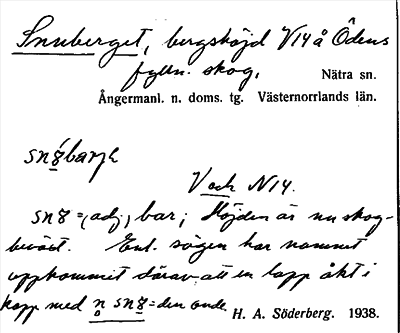 Snuberget, bergshöjd V14 å Ödens
fylln. skog.
Nätra sn.
Ångermanl. n. doms. tg. Västernorrlands län.
V och N14.
= (adj.) bar; Höjden är nu skog-
beväxt. Enl. sägen har namnet
uppkommit därav att en lapp åkt i
kapp med = den onde
H. A. Söderberg. 1938.